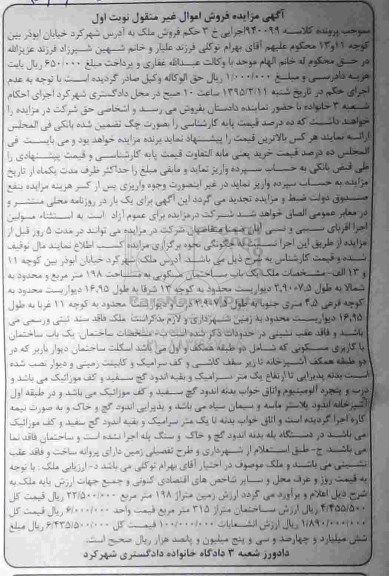 آگهی مزایده فروش اموال غیر منقول نوبت اول
بموجب پرونده کلاسه ۹۴۰۰۹۹اجرایی خ ۳ حکم فروش ملک به آدرس شهرکرد خیابان ابوذر بین
کوچه ۱۱و۱۳ محکوم علیهم آقای بهرام توکلی فرزند علیار و خانم شهین شیرزاد فرزند عزیزالله
در حق محکوم له خانم الهام موحد با وکالت عبدالله غفاری و پرداخت مبلغ ۶۵۰/۰۰۰ ریال بابت
هزینه دادرسی و مبلغ ۱/۰۰۰/۰۰۰ ریال حق الوکاله وکیل صادر گردیده است با توجه به عدم
اجرای حکم در تاریخ شنبه ۱۳۹۵/۳/۱۱ ساعت ۱۰ صبح در محل دادگستری شهرکرد اجرای احکام
شعبه ۳ خانواده با حضور نماینده دادستان بفروش می رسد و اشخاصی حق شرکت در مزایده را
خواهند داشت که ده درصد قیمت پایه کارشناسی را بصورت چک تضمین شده بانکی فی المجلس
ارائه نمایند هر کس بالاترین قیمت را پیشنهاد نماید برنده مزایده خواهد بود و می بایست فی
المجلس ده درصد قیمت خرید یعنی مابه التفاوت قیمت پایه کارشناسی و قیمت پیشنهادی را
طی فیش بانکی به حساب سپرده واریز نماید و مابقی مبلغ را حداکثر ظرف مدت یکماه از تاریخ
مزایده به حساب سپرده واریز نماید در غیر اینصورت وجوه واریزی پس از کسر هزینه مزایده بنفع
صندوق دولت ضبط و مزایده تجدید می گردد این آگهی برای یک بار در روزنامه محلی منتشر و
در معابر عمومی الصاق خواهد شد شرکت در مزایده برای عموم آزاد است به استثناء مسولین
اجرا اقربای سببی و نسبی آنان ضمنا متقاضیان شرکت در مزایده می توانند در مدت ۵ روز قبل از
مزایده از طریق این اجرا نسبت به چگونگی نحوه برگزاری مزایده کسب اطلاع نمایند مال توقیف
شده و قیمت کارشناسی به شرح ذیل می باشد آدرس ملک: شهرکرد خیابان ابوذر بین کوچه ۱۱
و ۱۳ الف-مشخصات ملک یک باب ساختمان مسکونی به مساحت ۱۹۸ متر مربع و محدود به
شمالا به طول ۲،۹۰۷،۵ دیواریست محدود به کوچه ۱۳ شرقا به طول ۱۶،۹۵ دیواریست محدود به
کوچه فرعی ۴،۵ متری جنوبا به طول ۲،۹۰۷،۵ درب و دیواریست محدود به کوچه ۱۱ غربا به طول
۱۶،۹۵ دیواریست محدود به زمین شهرداری و لازم بذکر است ملک فاقد سند ثبتی ورسمی می
باشد و فاقد عقب نشینی در حدودات ذکر شده است ب- مشخصات ساختمان: یک باب ساختمان
با کاربری مسکونی که شامل دو طبقه همکف و اول می باشد اسکلت ساختمان دیوار باربر که در
دو طبقه همکف آشپزخانه تا زیر سقف کاشی و کف سرامیک و کابینت زمینی و دیوار نصب شده
است بدنه پذیرایی تا ارتفاع یک متر سرامیک و بقیه اندود گچ سفید و کف موزائیک می باشد و
درب و پنجره آلومینیوم واتاق خواب بدنه اندود گچ سفید و کف موزائیک می باشد و در طبقه اول
آشپزخانه اندود پلاستر ماسه و سیمان سیاه می باشد و پذیرایی اندود گچ و خاک و به صورت نیمه
کاره اجرا گردیده است و اتاق خواب بدنه تا یک متر سرامیک و بقیه اندود گچ سفید و کف موزائیک
می باشند در دستگاه پله بدنه اندود گچ و خاک و سنگ پله اجرا نشده است و ساختمان فاقد نما
می باشند. ج- طبق استعلام از شهرداری و طرح تفصیلی زمین دارای پروانه ساخت و فاقد عقب
نشینی می باشند و ملک موصوف در اختیار آقای بهرام توکلی می باشد د- ارزیابی ملک: با توجه
به قیمت روز و عرف محل و سایر شاخص های اقتصادی کنونی و جمیع جهات ارزش پایه ملک به
شرح ذیل اعلام و برآورد می گردد ارزش زمین متراژ ۱۹۸ متر مربع ۲۲/۵۰۰/۰۰۰ ریال قیمت کل
۴/۴۵۵/۵۰۰ ریال ارزش ساختمان متراژ ۳۱۵ متر مربع قیمت واحد ۶/۰۰۰/۰۰۰ ریال قیمت کل
۱/۸۹۰/۰۰۰/۰۰۰ ریال ارزش انشعابات ۱۰۰/۰۰۰/۰۰۰ قیمت کل ۶/۴۳۵/۵۰۰/۰۰۰ ریال مبلغ
شش میلیارد و چهارصد و سی و پنج میلیون و پانصد هزار ریال صحیح است.
دادورز شعبه ۳ دادگاه خانواده دادگستری شهرکرد